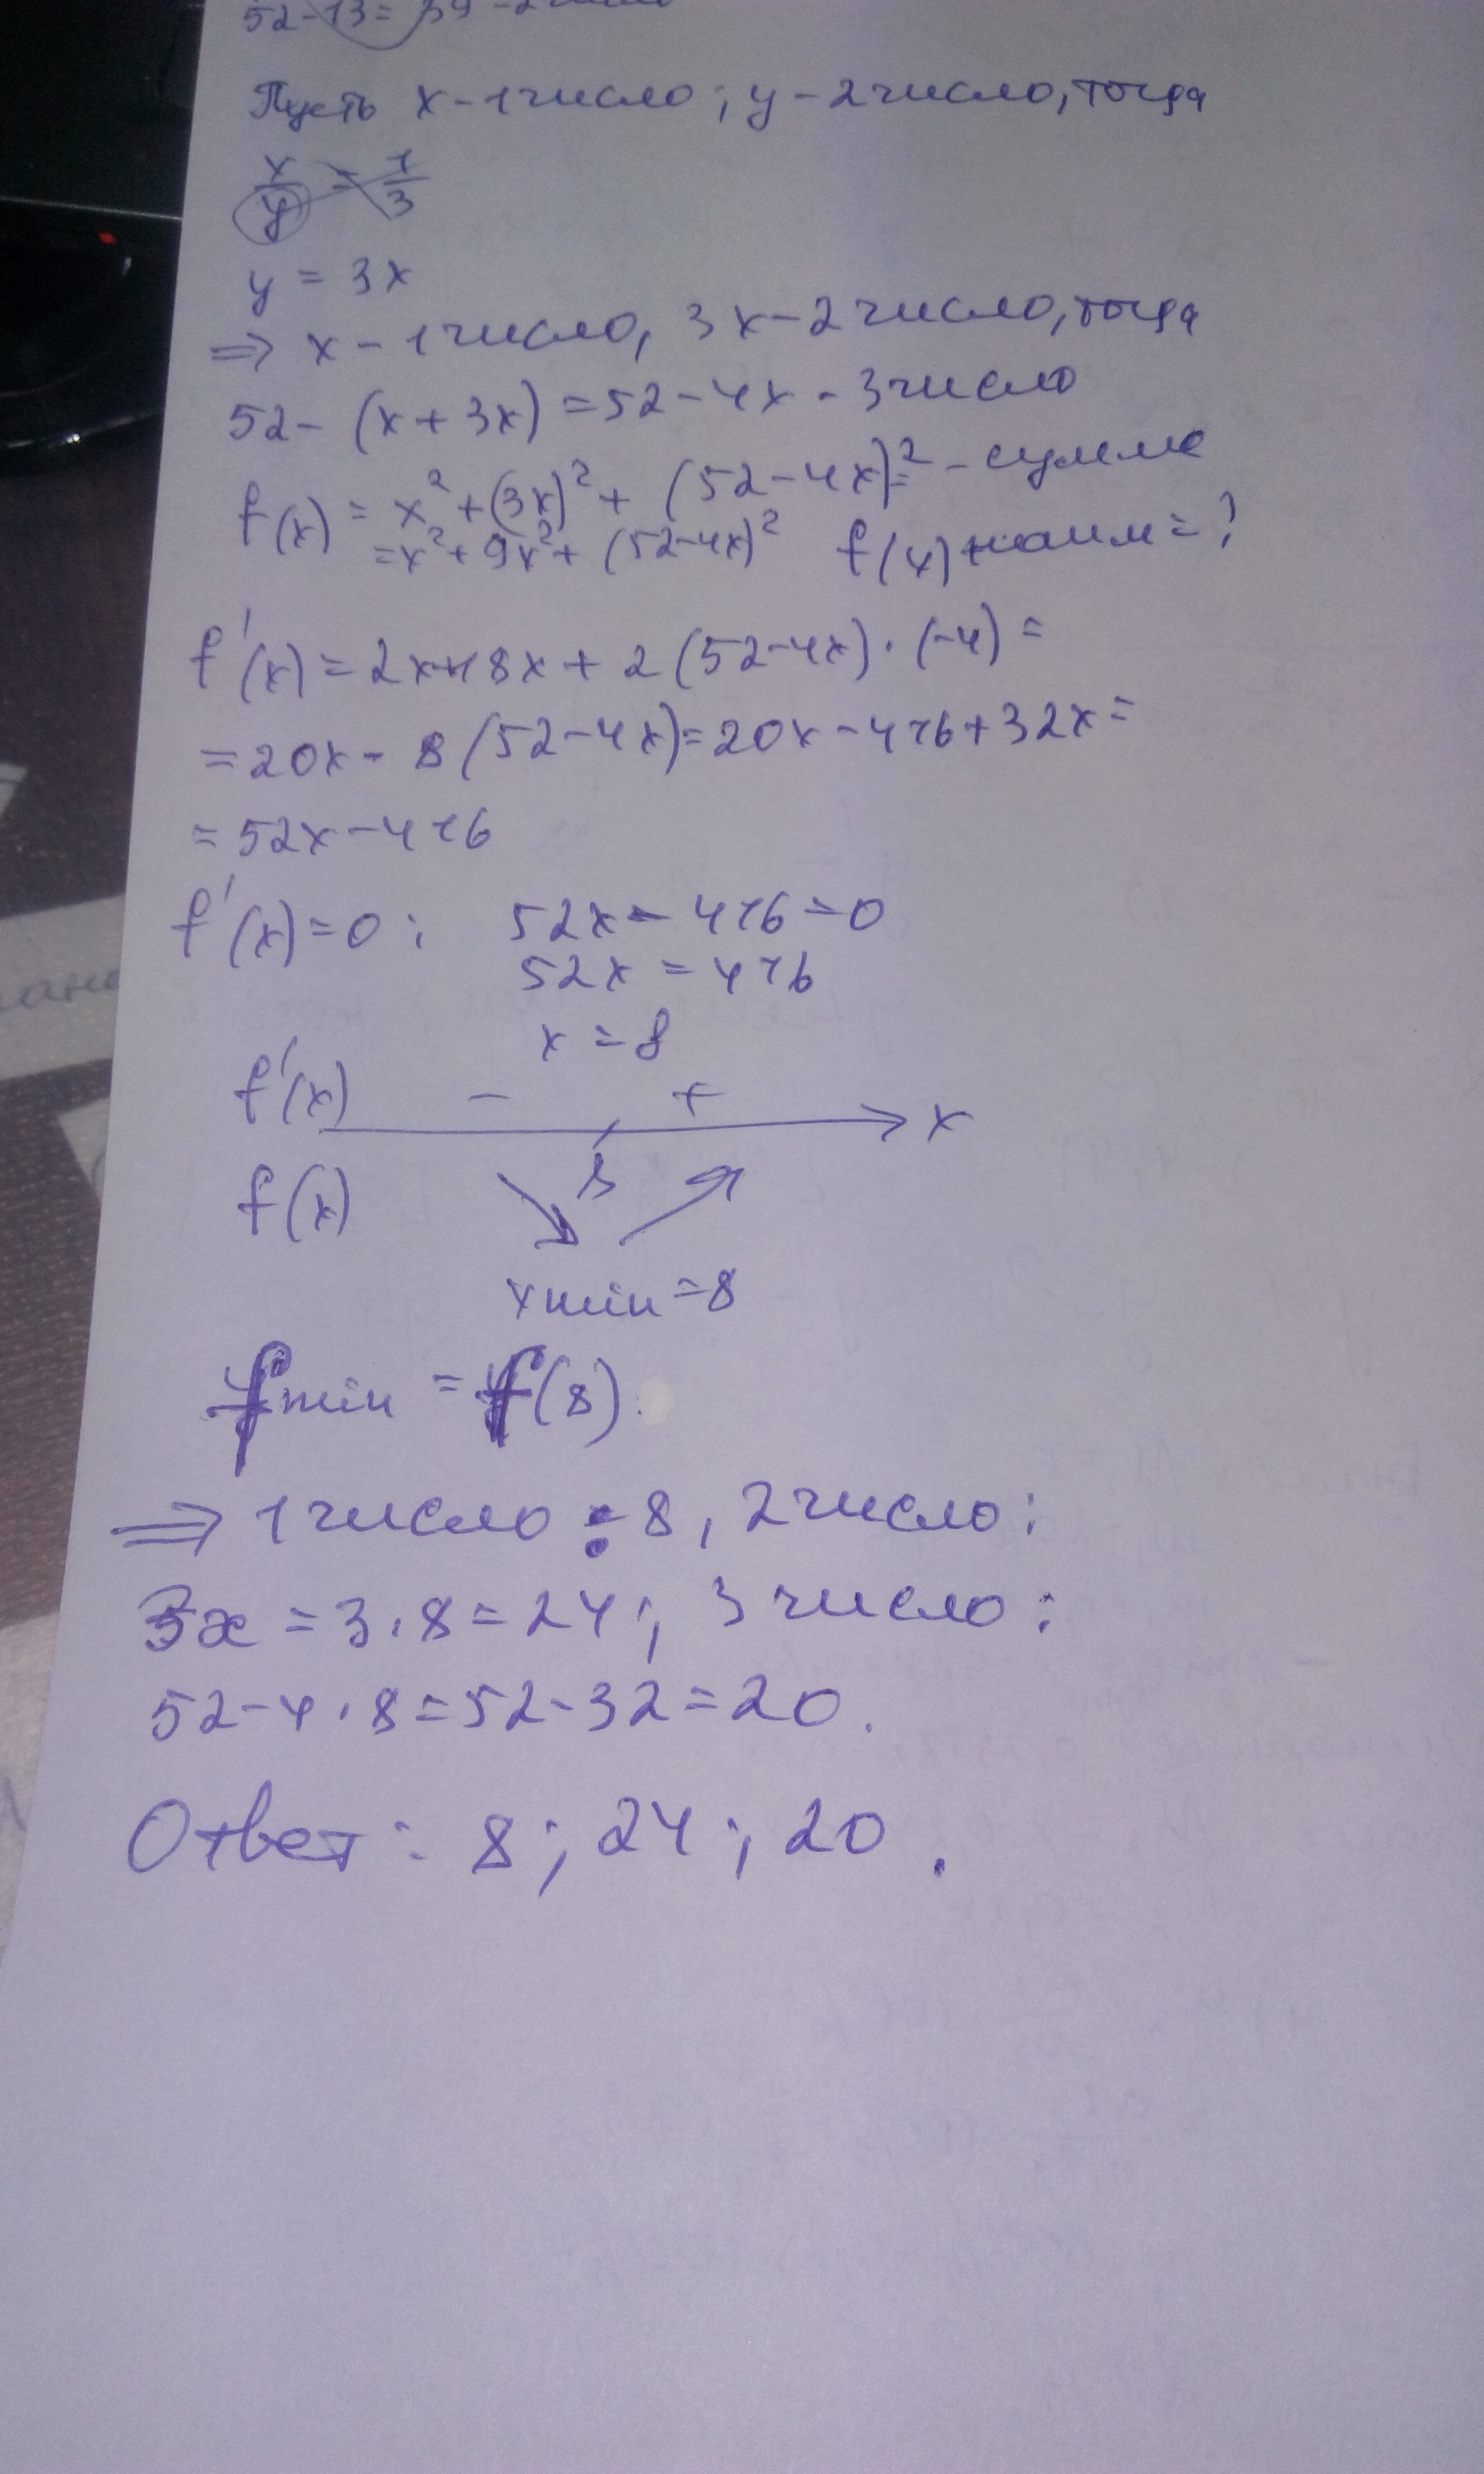 52-13=39-2
Пусть x-1число; y-2число, тогда
x/y = 1/3
y = 3x
⇒ x-1число, 3x-2число, тогда
52-(x+3x)=52-4x-3число
f(x) = x²+(3x)²+(52-4x)²= -сумма
=x²+9x²+(52-4x)² f(x)наим=?
f'(x)=2x+18x+2(52-4x)·(-4)=
=20x-8(52-4x)=20x-416+32x=
=52x-416
f'(x)=0: 52x-416=0
52x=416
x=8
f'(x) - + x
f(x) 8
xmin=8
fmin = f(8).
⇒ 1число: 8, 2число:
3x=3·8=24; 3число:
52-4·8=52-32=20.
Ответ: 8; 24; 20.